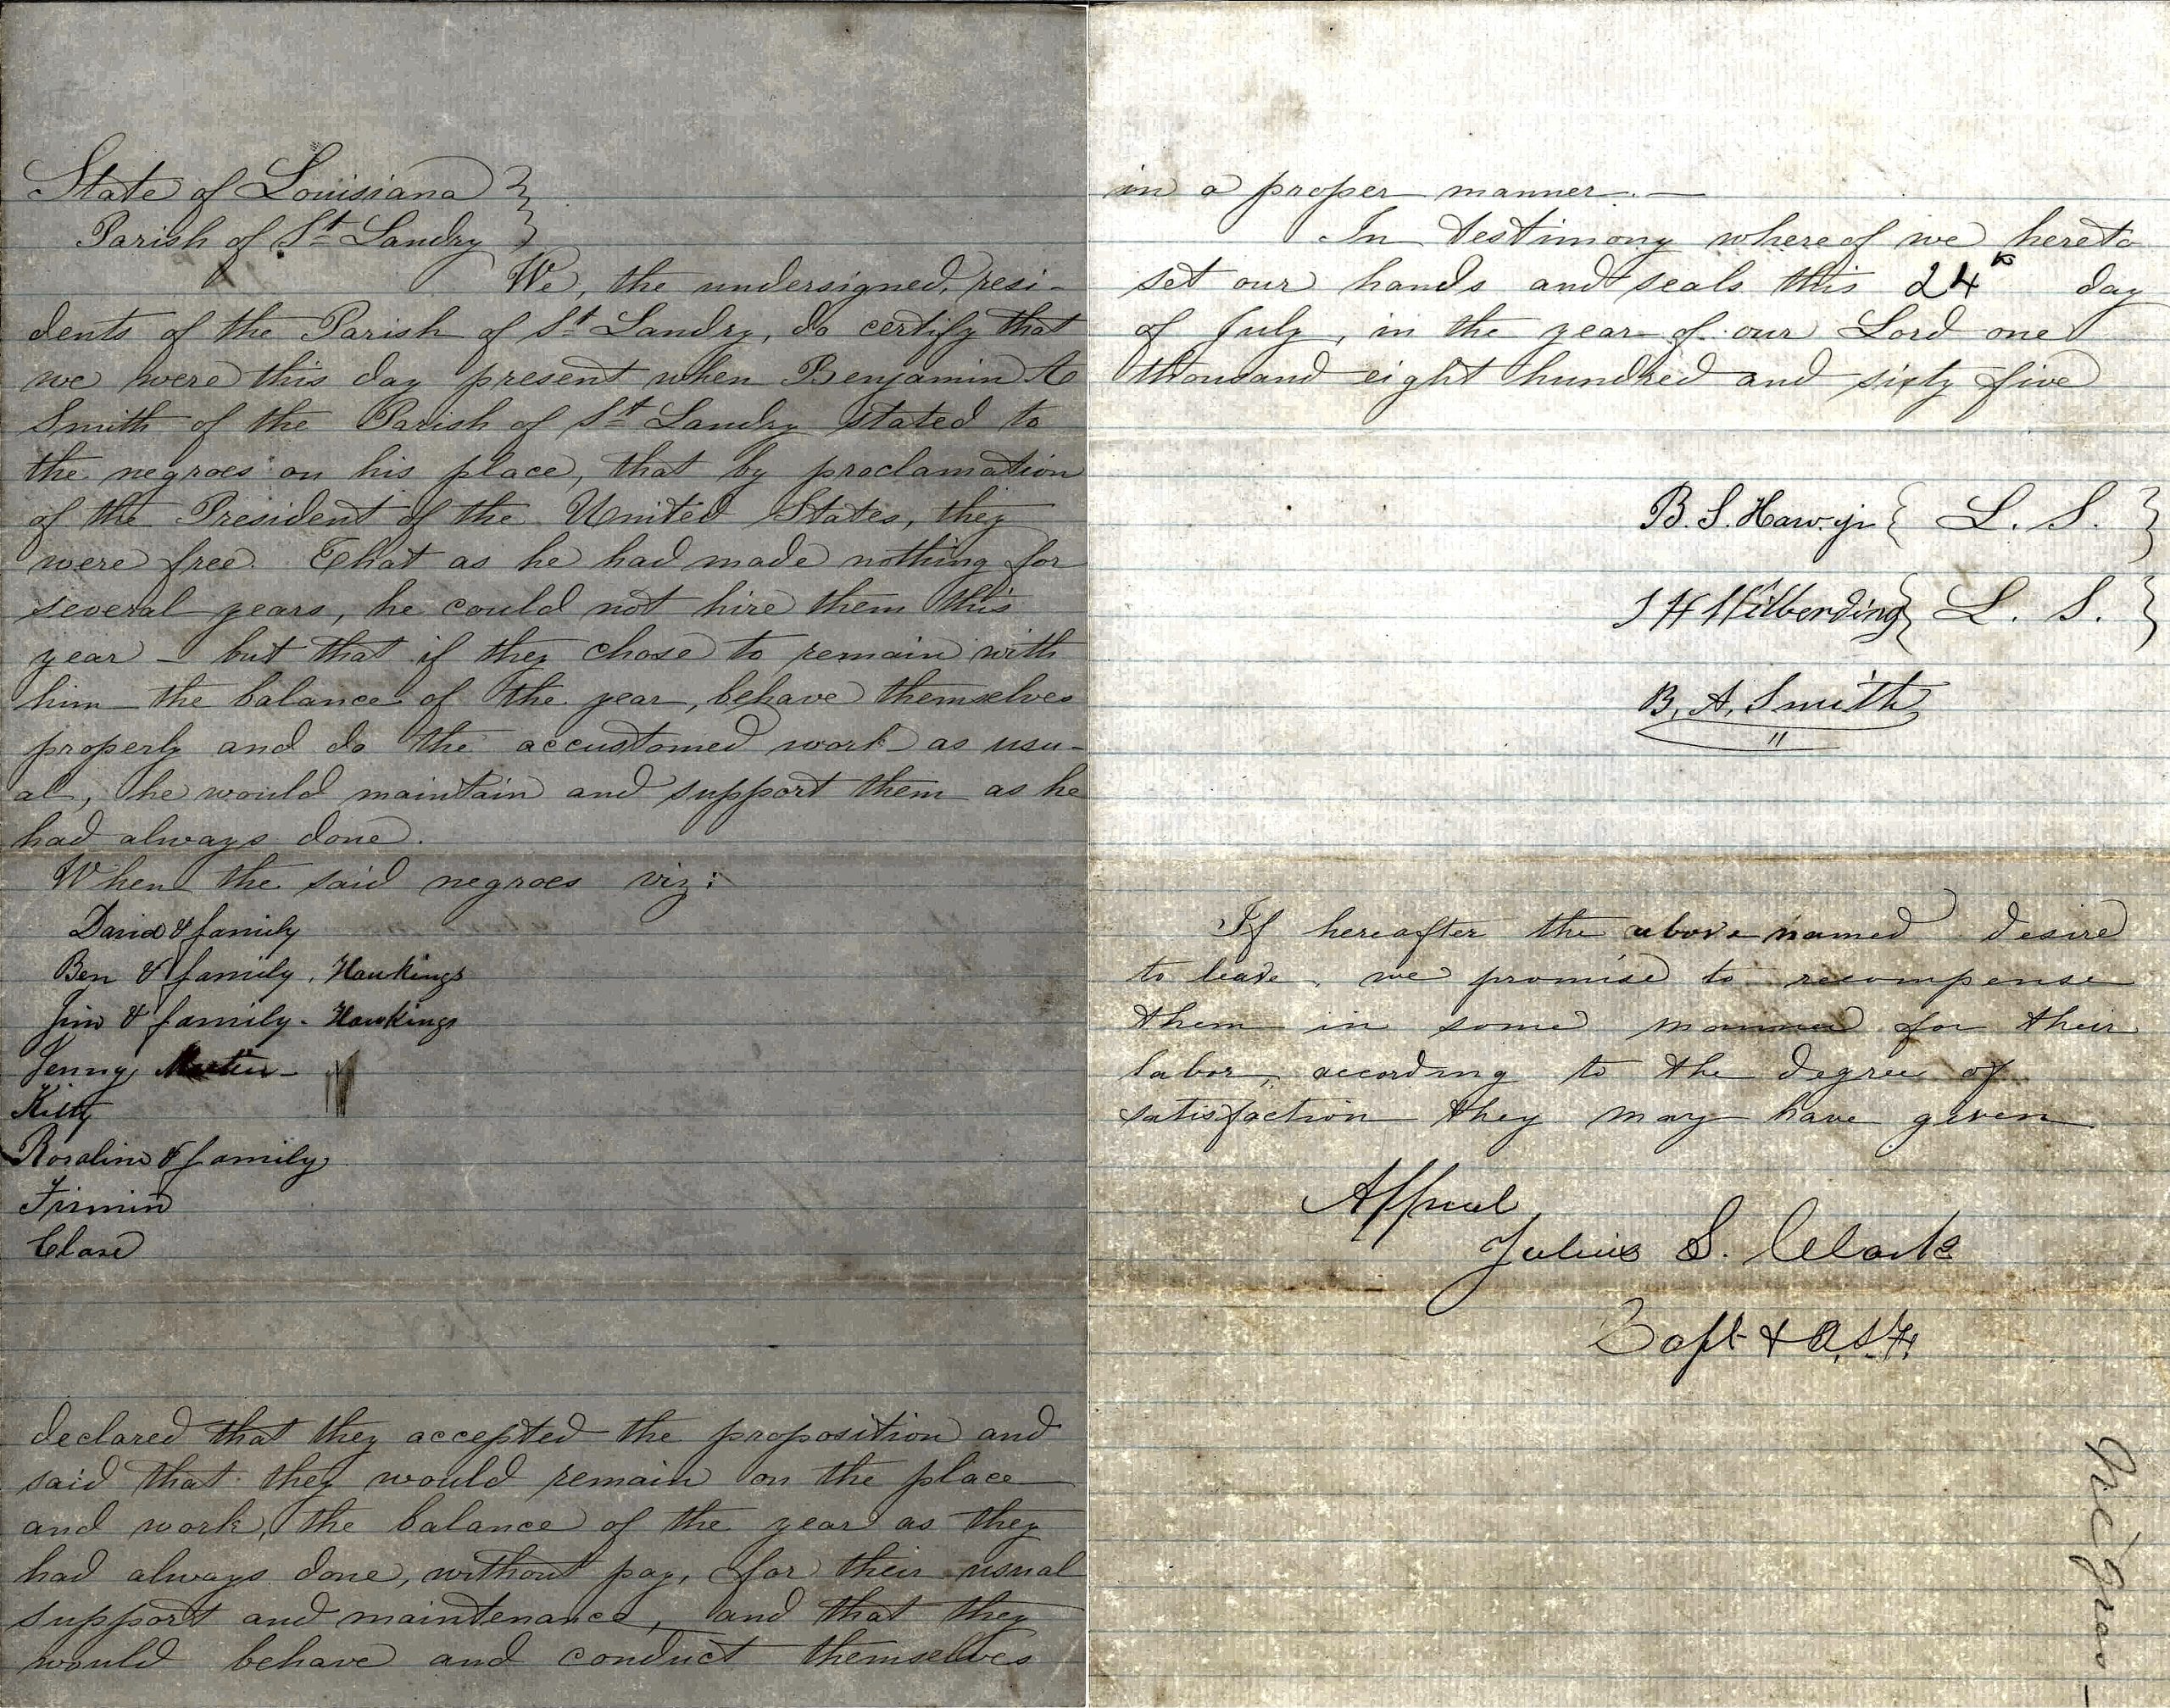 State of Louisiana }
Parish of St Landry }
We, the undersigned, resi-
dents of the Parish of St Landry, do certify that
we were this day present when Benjamin A
Smith of the Parish of St Landry stated to
the negroes on his place, that by proclamation
of the President of the United States, they
were free. That as he had made nothing for
several years, he could not hire them this
year - but that if they chose to remain with
him the balance of the year, behave themselves
properly and do the accustomed work as usu-
al, he would maintain and support them as he
had always done.
When the said negroes viz:
David & family
Ben & family, Hawkings
Jim & family - Hawkings
Jenny Martin -
Kitty
Rosaline & family
Firmin
Clase
declared that they accepted the proposition and
said that they would remain on the place
and work, the balance of the year as they
had always done, without pay, for their usual
support and maintenance, and that they
would behave and conduct themselves
in a proper manner. —
In testimony whereof we hereto
set our hands and seals this 24th day
of July, in the year of our Lord one
thousand eight hundred and sixty five
B. S. Haw jr { L. S. }
J H Hilberding { L. S. }
B. A. Smith
If hereafter the above named desire
to leave, we promise to recompense
them in some manner for their
labor, according to the degree of
satisfaction they may have given
Julius S. Clark
Capt &